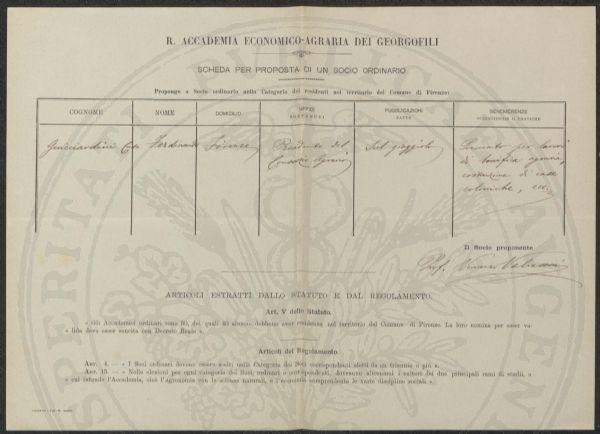 R. ACCADEMIA ECONOMICO-AGRARIA DEI GEORGOFILI
SCHEDA PER PROPOSTA DI UN SOCIO ORDINARIO
Propongo a Socio ordinario nella Categoria dei residenti nel territorio del Comune di Firenze:
COGNOME NOME DOMICILIO UFFICI SOSTENUTI PUBBLICAZIONI FATTE BENEMERENZE SCIENTIFICHE O PRATICHE
Guicciardini Ferdinando Firenze Presidente del Sul Premiato per lavori
Consorzio Agrario di bonifica agraria,
costruzione di case
coloniche, ecc.
Il Socio proponente
Prof. Vittorio
ARTICOLI ESTRATTI DALLO STATUTO E DAL REGOLAMENTO.
Art. V dello Statuto.
« Gli Accademici ordinari sono 80, dei quali 40 almeno debbono aver residenza nel territorio del Comune di Firenze. La loro nomina per esser va-
« lida deve esser sancita con Decreto Reale ».
Articoli del Regolamento.
ART. 4. — « I Soci ordinari devono essere scelti nella Categoria dei Soci corrispondenti eletti da un triennio o più ».
ART. 15. — « Nelle elezioni per ogni categoria dei Soci, ordinari o corrispondenti, dovranno alternarsi i cultori dei due principali rami di studii, a
« cui intende l'Accademia, cioè l'agronomia con le scienze naturali, e l'economia comprendente le varie discipline sociali ».